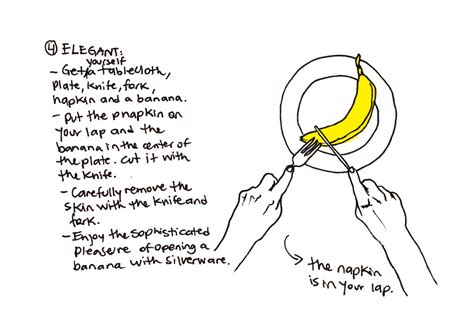 ④ ELEGANT:
yourself
- Get a tablecloth,
plate, knife, fork,
napkin and a banana.
- Put the napkin on
your lap and the
banana in the center of
the plate. Cut it with
the knife.
- Carefully remove the
skin with the knife and
fork.
- Enjoy the sophisticated
pleasure of opening a
banana with silverware.
the napkin
is in your lap.